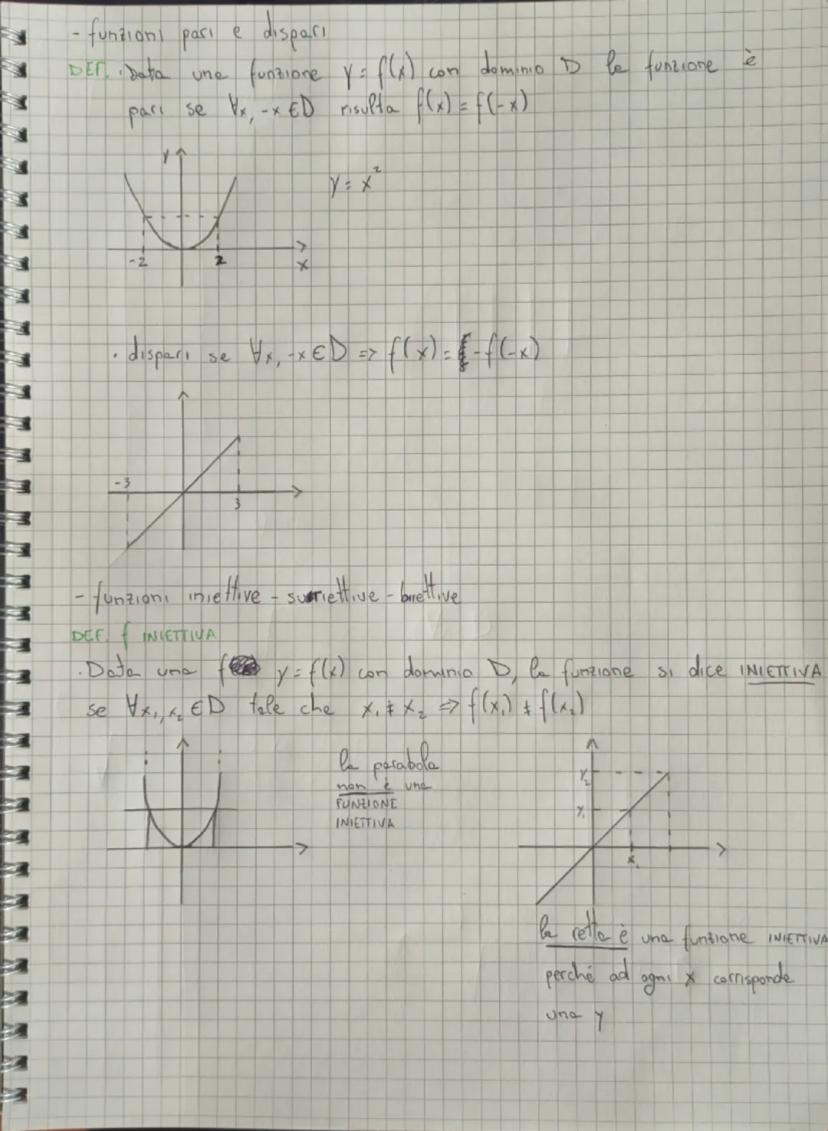 - funzioni pari e dispari
DEF. • Data una funzione y = f(x) con dominio D la funzione è
pari se ∀x, -x ∈ D risulta f(x) = f(-x)
y
y = x²
-2
2
x
• dispari se ∀x, -x ∈ D => f(x) = - f(-x)
-3
3
- funzioni iniettive - suriettive - biiettive
DEF. f INIETTIVA
• Data una f y = f(x) con dominio D, la funzione si dice INIETTIVA
se ∀x₁, x₂ ∈ D tale che x₁ ≠ x₂ => f(x₁) ≠ f(x₂)
la parabola
non è una
FUNZIONE
INIETTIVA
y₂
y₁
x₁
la retta è una funzione INIETTIVA
perché ad ogni x corrisponde
una y